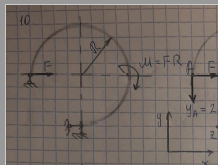 10
F
R
M=FR
A
F
y_A=2
y
z